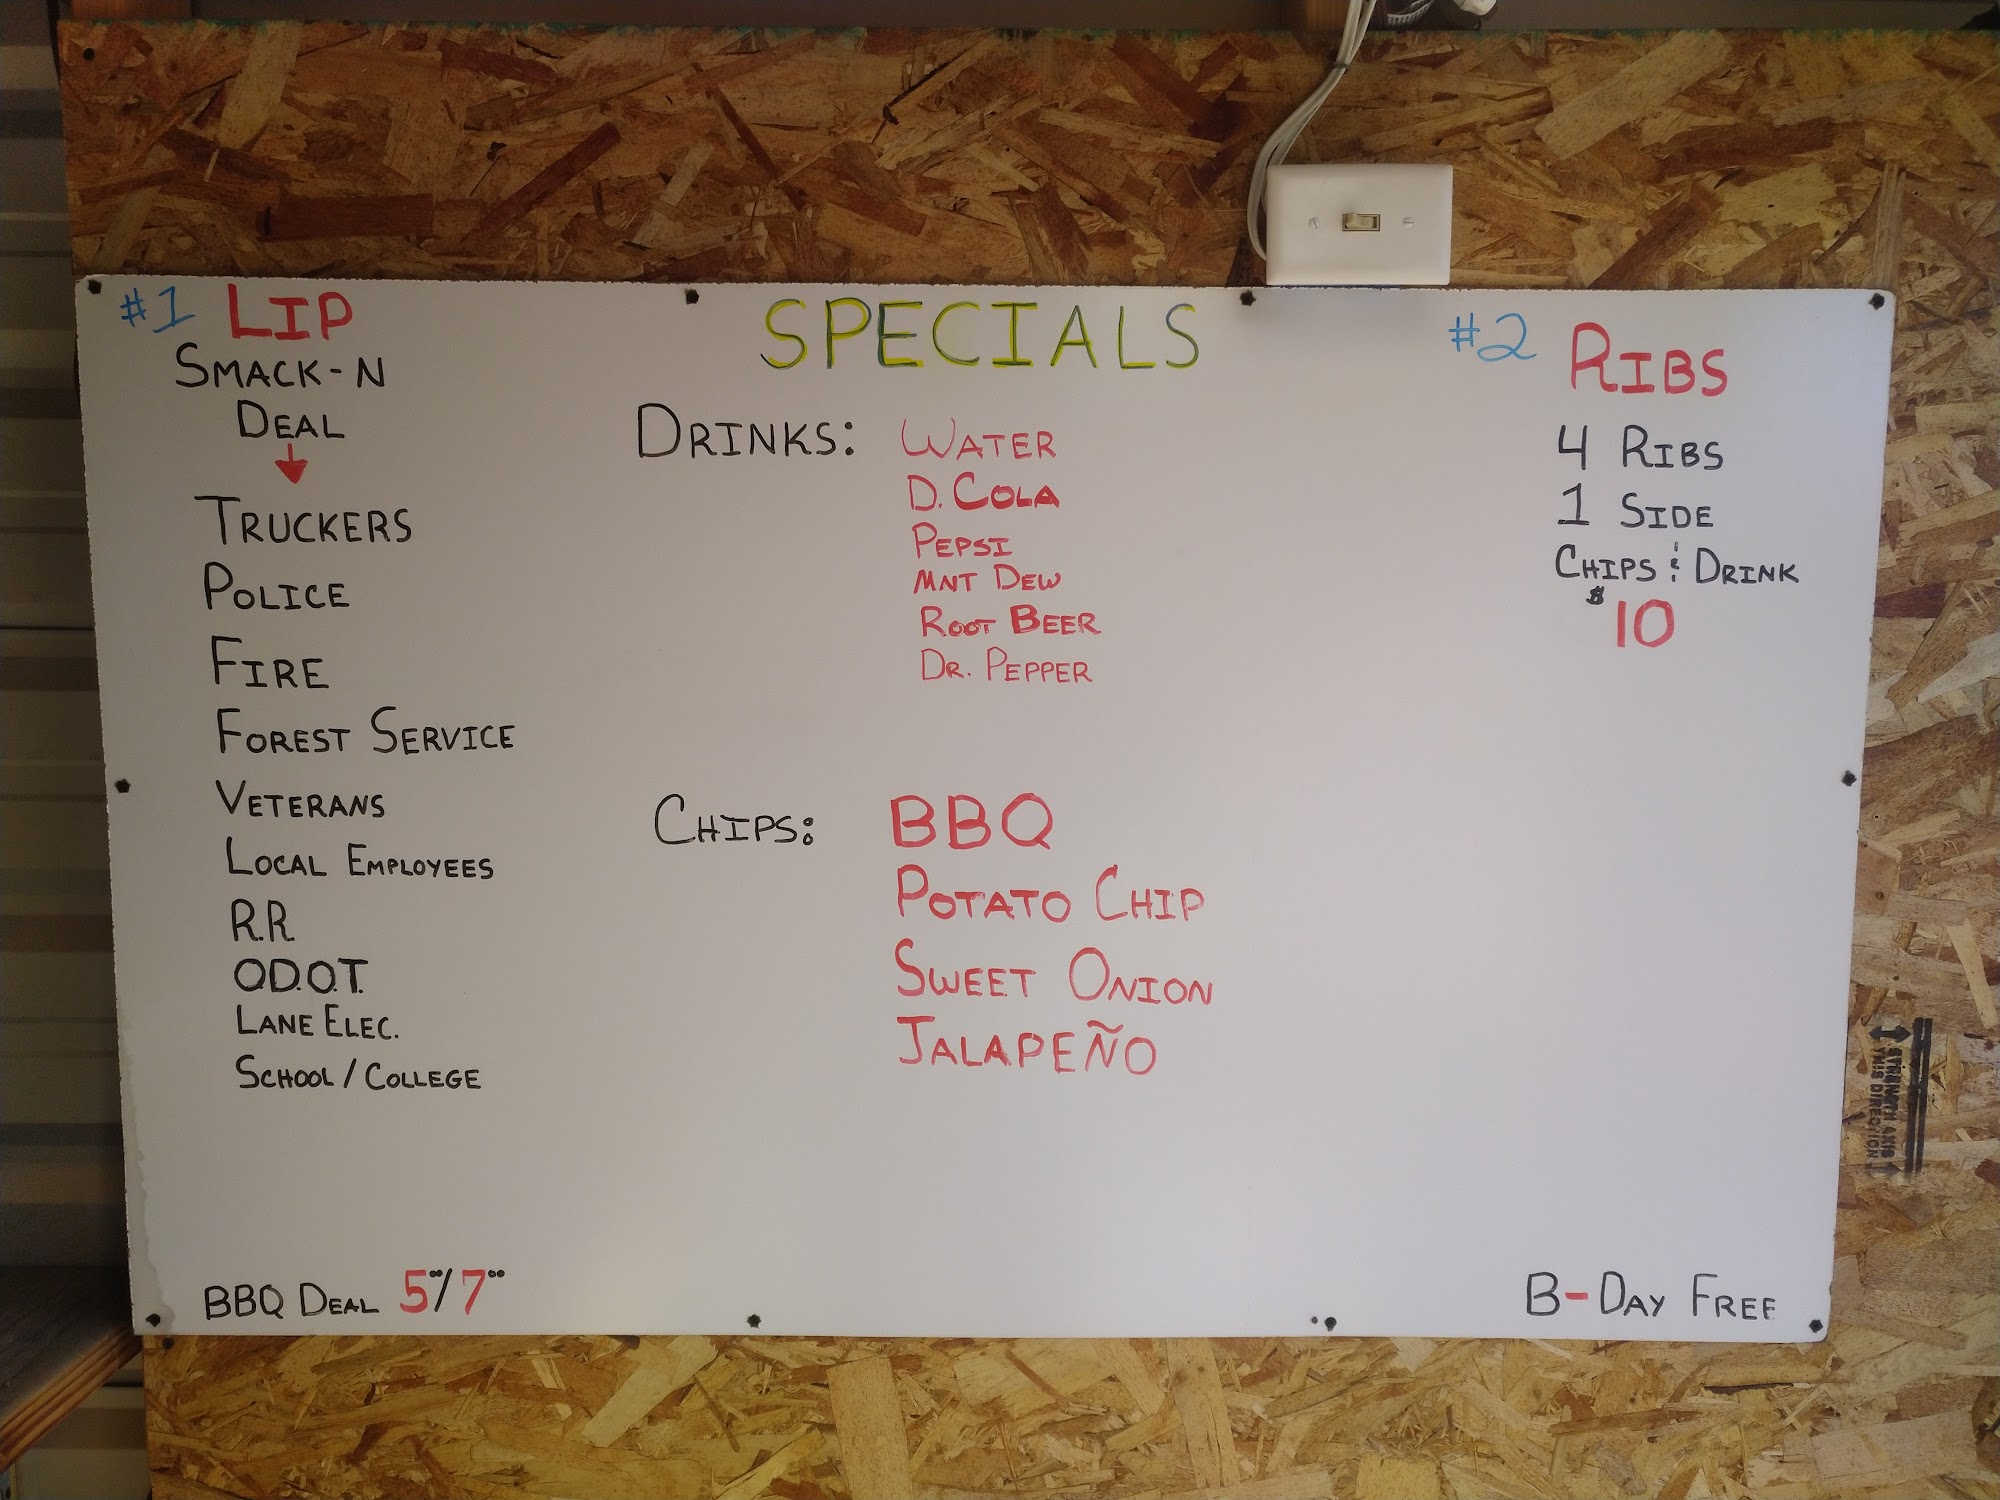 SPECIALS
#1 LIP
SMACK-N
DEAL
TRUCKERS
POLICE
FIRE
FOREST SERVICE
VETERANS
LOCAL EMPLOYEES
R.R.
O.D.O.T.
LANE ELEC.
SCHOOL / COLLEGE
BBQ DEAL 5""/7""
DRINKS: WATER
D. COLA
PEPSI
MNT DEW
ROOT BEER
DR. PEPPER
CHIPS: BBQ
POTATO CHIP
SWEET ONION
JALAPEÑO
#2 RIBS
4 RIBS
1 SIDE
CHIPS & DRINK
$10
B-DAY FREE
STRENGTH AXIS
THIS DIRECTION